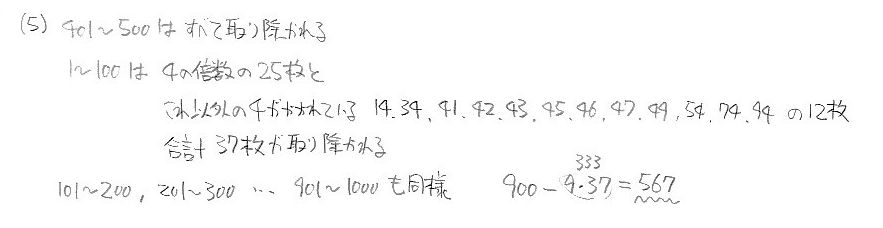 (5) 401~500は すべて取り除かれる
1~100は 4の倍数の25枚と
これ以外の4がかかれている 14.34、41.42.43、45.46、47.49、54.74.94 の12枚
合計 37枚が取り除かれる
101~200、201~300 … 901~1000も同様 900-9・37=567
333